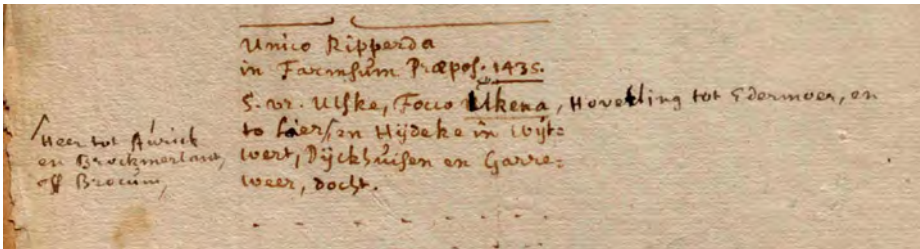 Unico Ripperda
in Farmsum Præpos. 1435.
S. vr. Ulske, Focco Ukena, Hovetling tot Edermoer, en
to Lier, en Hijdeke in Wijt=
wert, Dijckhuisen en Garre=
weer, docht.
Heer tot Awrick
en Brockmerlant,
off Brocum,